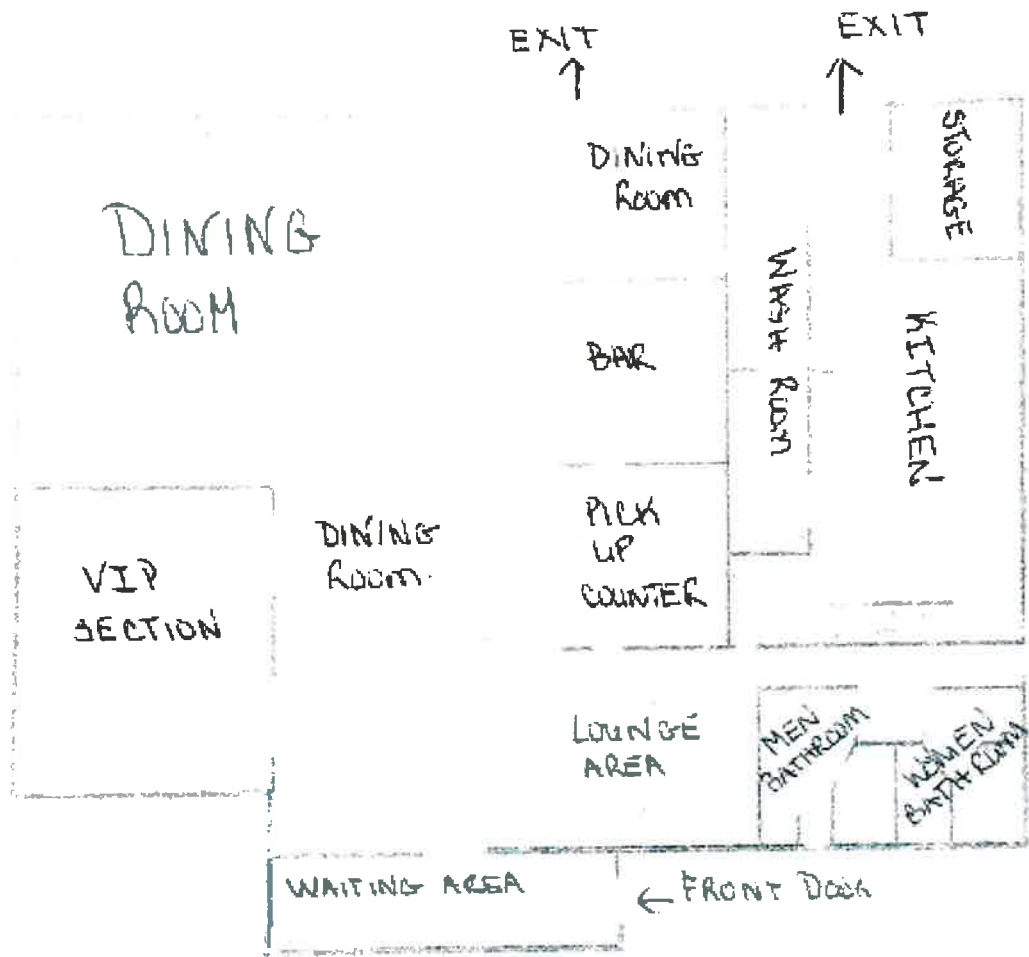 EXIT
EXIT
DINING
ROOM
DINING
ROOM
STORAGE
BAR
WASH ROOM
KITCHEN
VIP
SECTION
DINING
ROOM
PICK
UP
COUNTER
LOUNGE
AREA
MEN
BATHROOM
WOMEN
BATHROOM
WAITING AREA
← FRONT DOOR